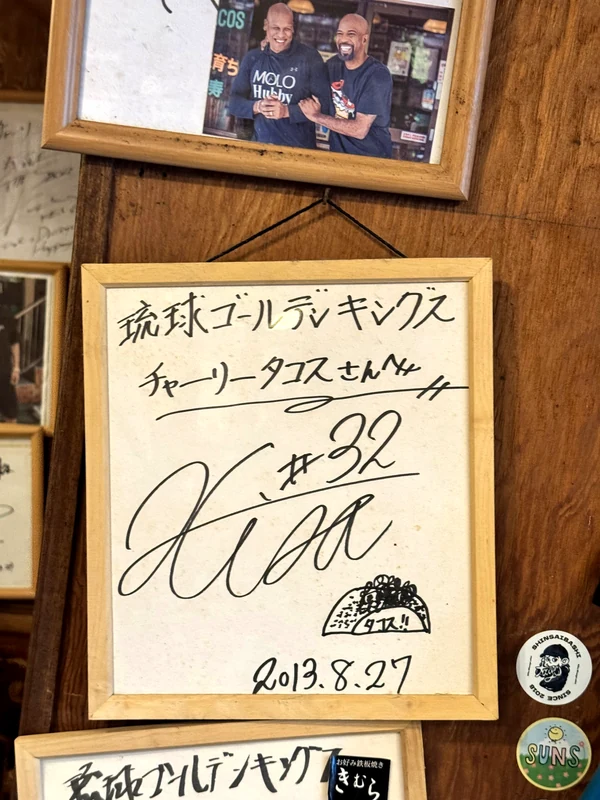 COS
育ち
寿
MOLO
Hubby
琉球ゴールデンキングス
チャーリータコスさんへ
#32
タコス!!
2013.8.27
SHINSAIBASHI
SINCE 2018
SUNS
琉球ゴールデンキングス
お好み鉄板焼き
きむら